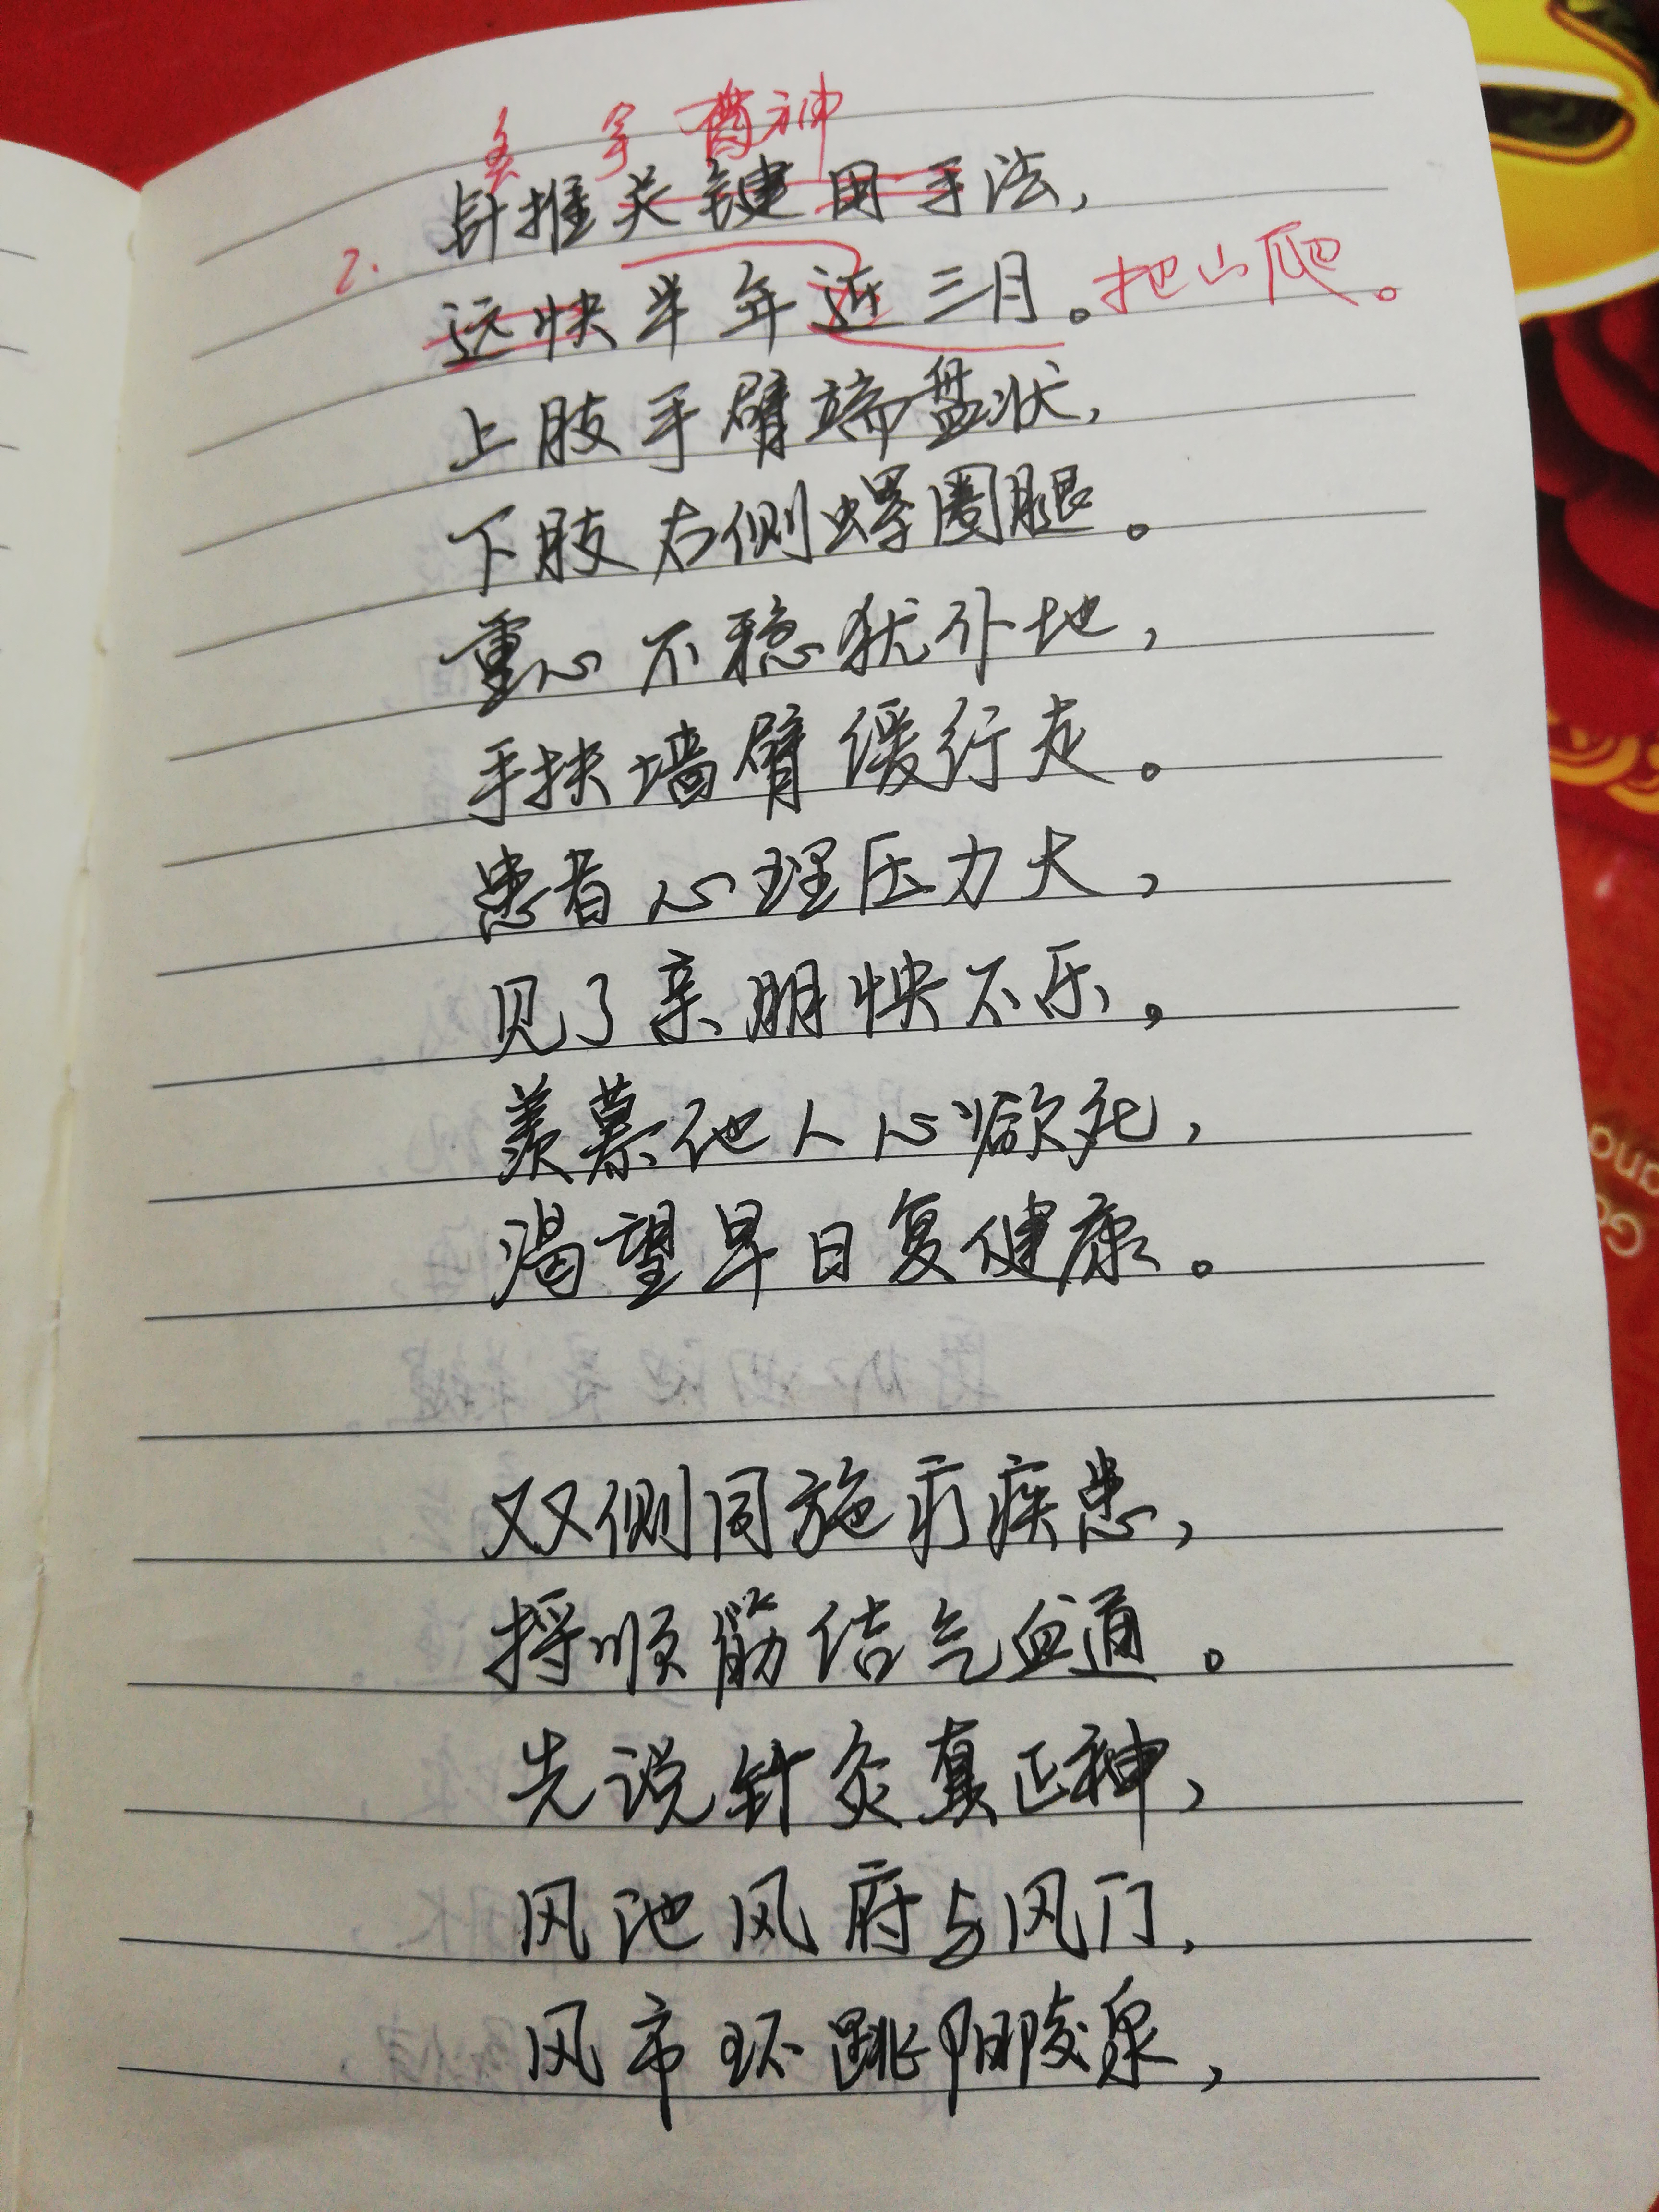 费神
2. 针推关键用手法,
远快半年近三月。把山爬。
上肢手臂端盘状,
下肢右侧螺圈腿。
重心不稳犹仆地,
手扶墙臂缓行走。
患者心理压力大,
见了亲朋怏不乐。
羡慕他人心欲死,
渴望早日复健康。
双侧同施疗疾患,
捋顺筋结气血通。
先说针灸真正神,
风池风府与风门,
风市环跳阳陵泉,